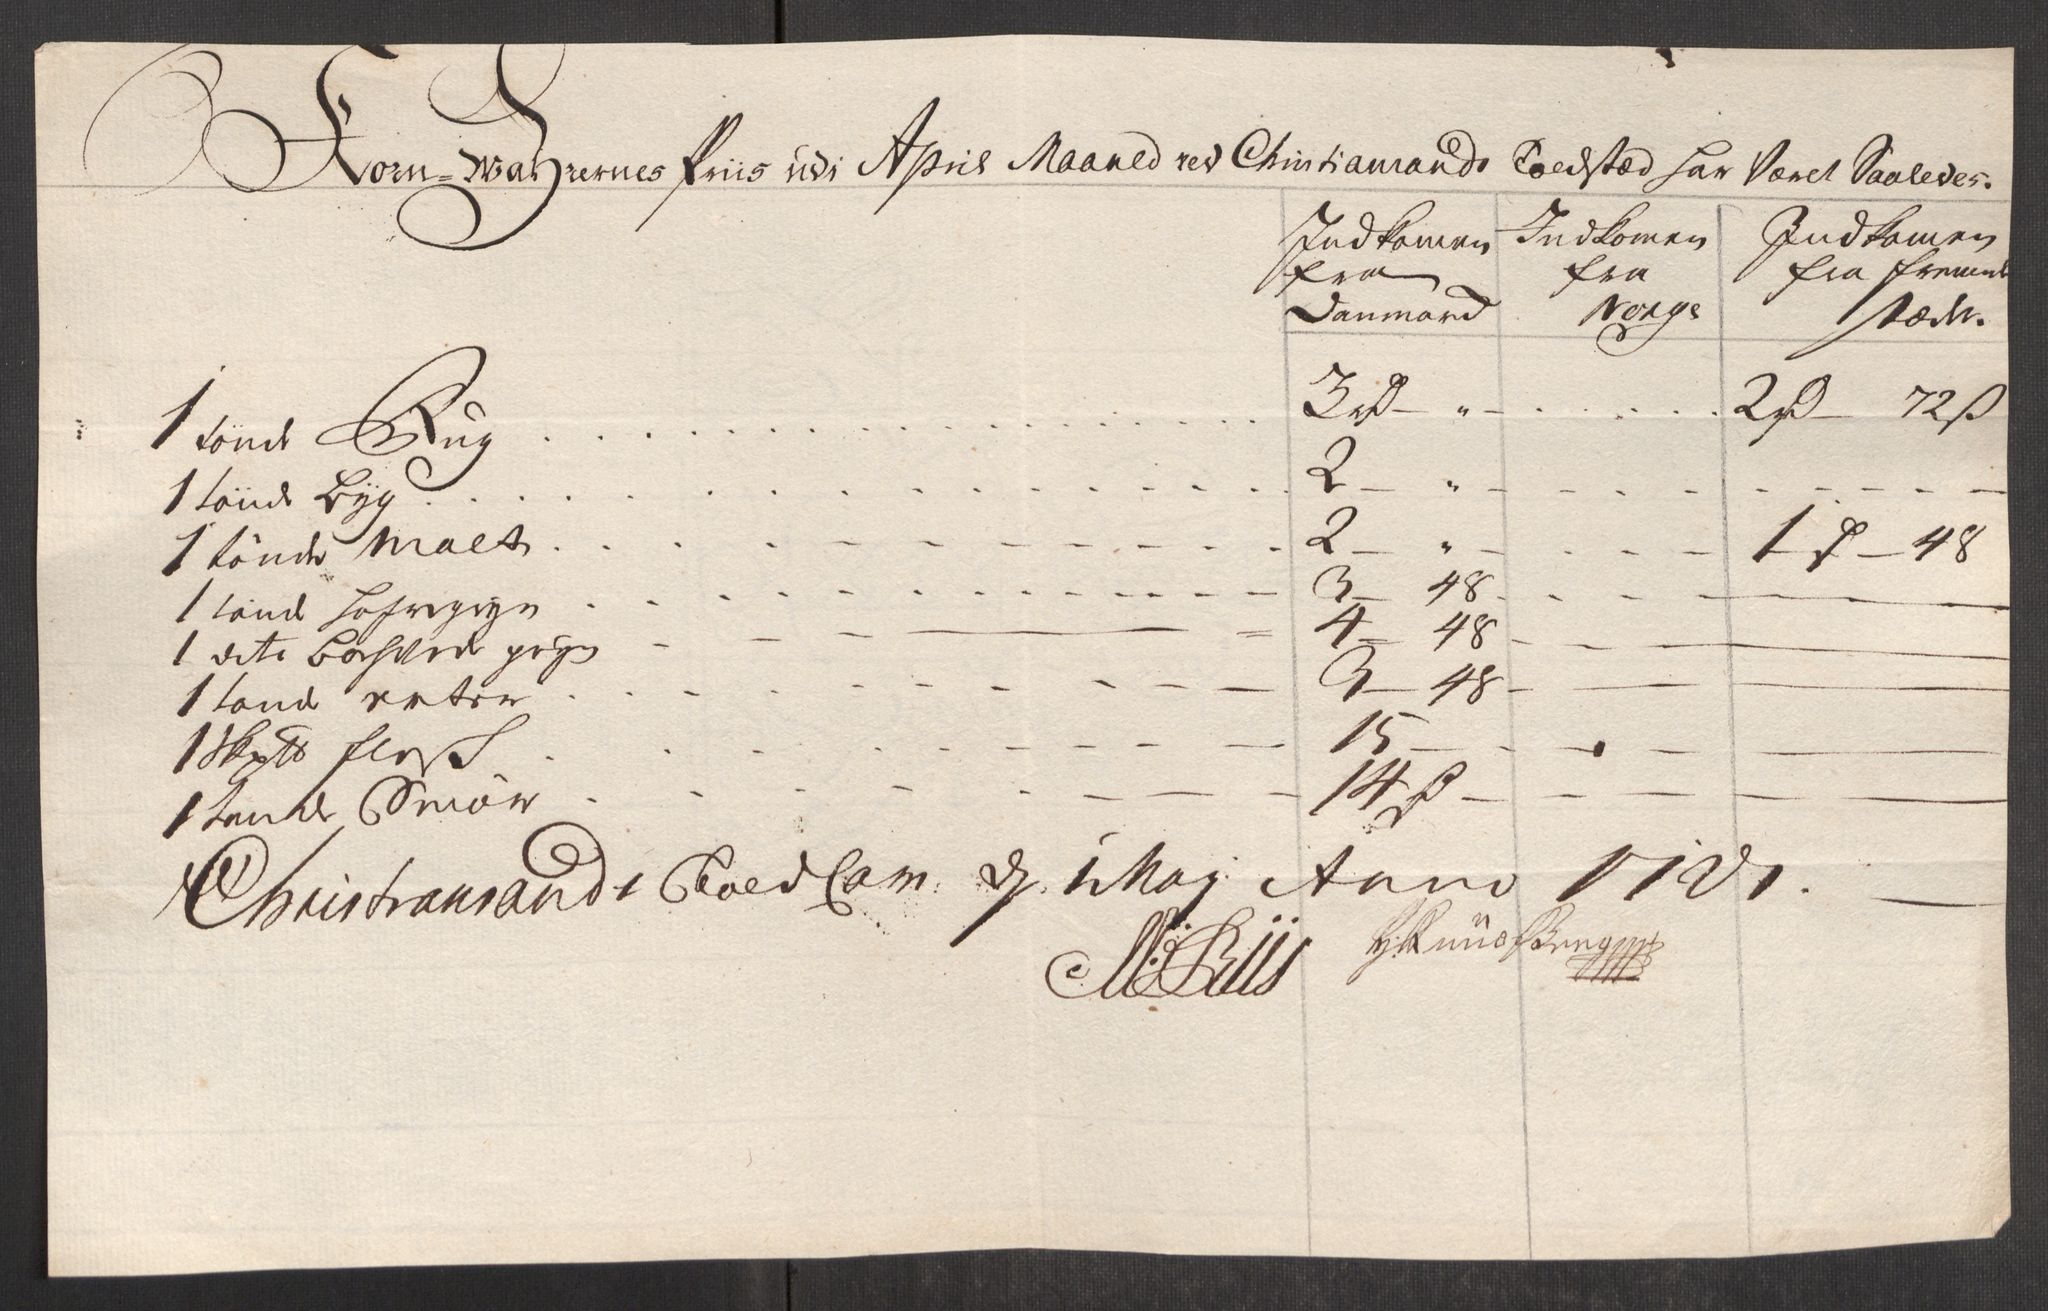 Korn-Wahrernes Priis udi April Maaned ved Christiansands Toldstæd har Været Saaledes.
Indkomen fra Danmarck
Indkomen fra Norge
Indkomen fra fremmde stæder.
1 tönde Rug 3 rd - " - 2 rd - 72 ß
1 tönde Byg 2 - " -
1 tönde Malt 2 - " - 1 rd - 48
1 tönde hafregryn 3 - 48
1 dito Boghvede gryn 4 - 48
1 tönde erter 3 - 48
1 Skpd flesk 15
1 tönde Smör 14 rd
Christiansands Told Cam. d. 1 Maj Anno 1721.
Riis